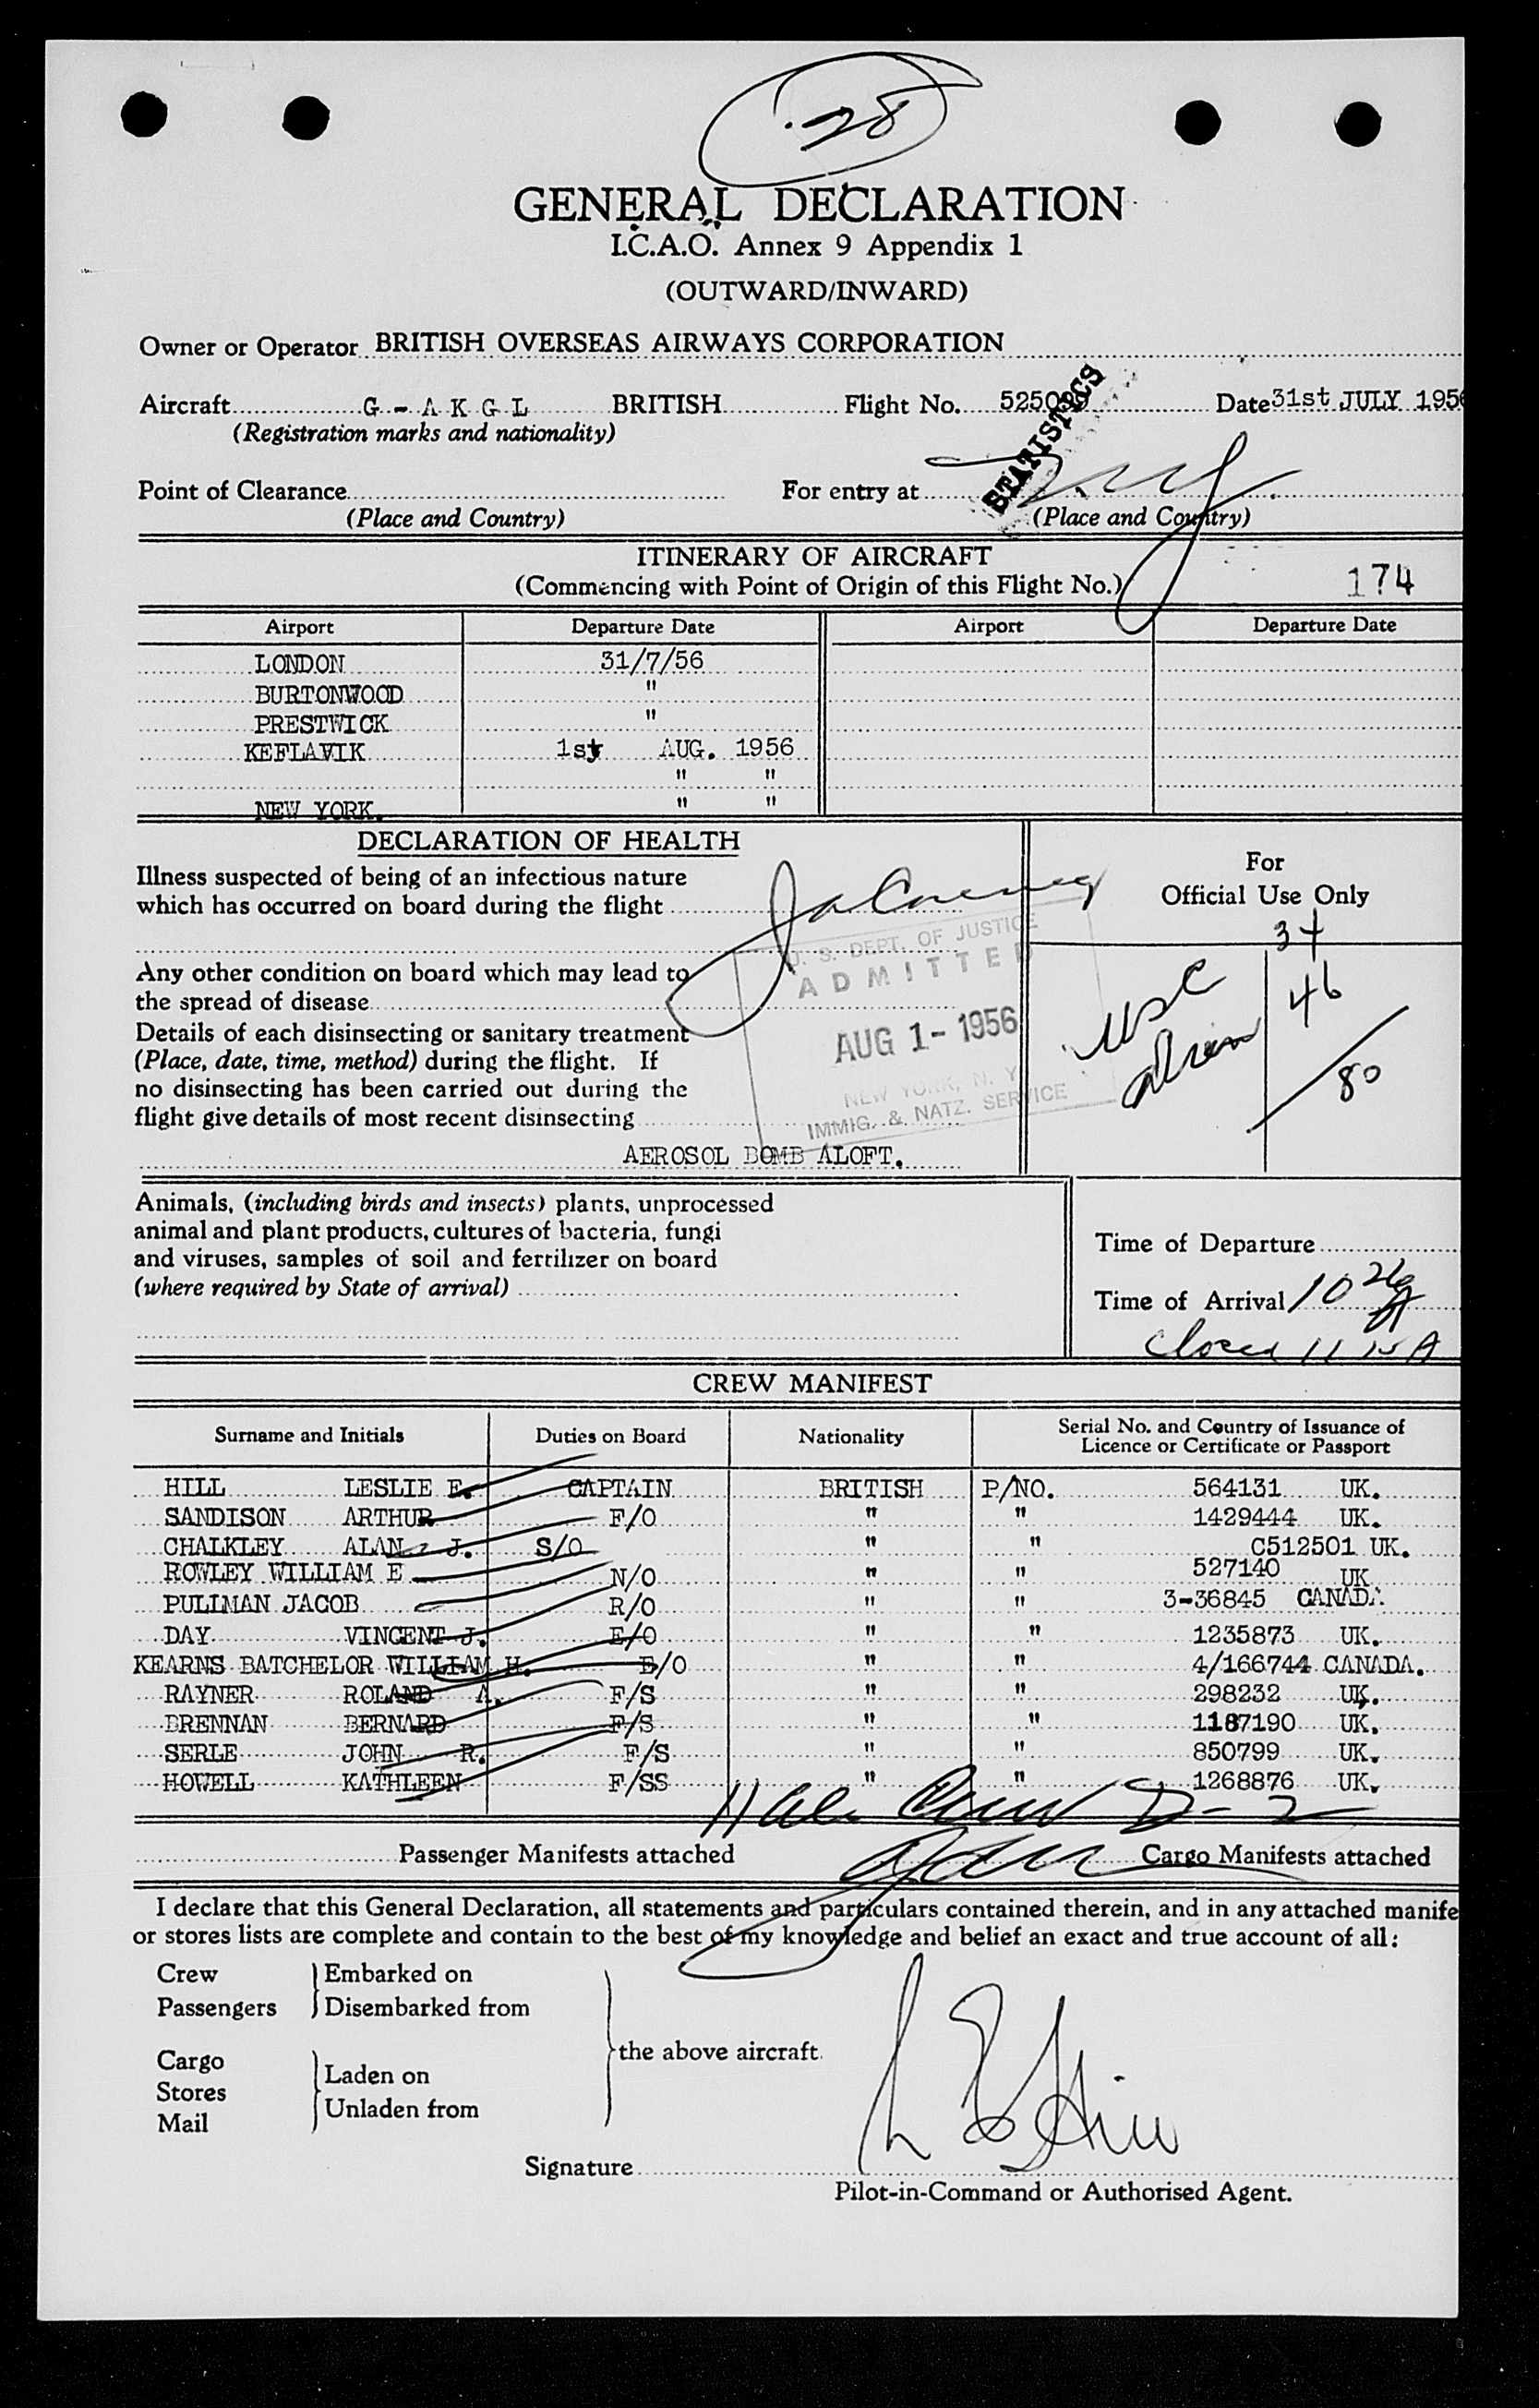 28
GENERAL DECLARATION
I.C.A.O. Annex 9 Appendix 1
(OUTWARD/INWARD)
Owner or Operator BRITISH OVERSEAS AIRWAYS CORPORATION
Aircraft G - A K G L BRITISH Flight No. 525 Date 31st JULY 1956
(Registration marks and nationality)
STATISTICS
Point of Clearance For entry at
(Place and Country) (Place and Country)
ITINERARY OF AIRCRAFT
(Commencing with Point of Origin of this Flight No.) 174
Airport Departure Date Airport Departure Date
LONDON 31/7/56
BURTONWOOD "
PRESTWICK "
KEFLAVIK 1st AUG. 1956
" "
NEW YORK. " "
DECLARATION OF HEALTH
Illness suspected of being of an infectious nature
which has occurred on board during the flight
Any other condition on board which may lead to
the spread of disease
Details of each disinsecting or sanitary treatment
(Place, date, time, method) during the flight. If
no disinsecting has been carried out during the
flight give details of most recent disinsecting
AEROSOL BOMB ALOFT.
U. S. DEPT. OF JUSTICE
ADMITTED
AUG 1- 1956
NEW YORK, N. Y.
IMMIG. & NATZ. SERVICE
For
Official Use Only
34
USC 46
Alien
80
Animals, (including birds and insects) plants, unprocessed
animal and plant products, cultures of bacteria, fungi
and viruses, samples of soil and fertilizer on board
(where required by State of arrival)
Time of Departure
Time of Arrival 10 26 A
Closed 11 15 A
CREW MANIFEST
Surname and Initials Duties on Board Nationality Serial No. and Country of Issuance of
Licence or Certificate or Passport
HILL LESLIE E. CAPTAIN BRITISH P/NO. 564131 UK.
SANDISON ARTHUR F/O " " 1429444 UK.
CHALKLEY ALAN J. S/O " " C512501 UK.
ROWLEY WILLIAM E N/O " " 527140 UK
PULLMAN JACOB R/O " " 3-36845 CANADA.
DAY VINCENT J. E/O " " 1235873 UK.
KEARNS BATCHELOR WILLIAM H. E/O " " 4/166744 CANADA.
RAYNER ROLAND A. F/S " " 298232 UK.
BRENNAN BERNARD F/S " " 1187190 UK.
SERLE JOHN R. F/S " " 850799 UK.
HOWELL KATHLEEN F/SS " " 1268876 UK.
11 Crew D-2
Passenger Manifests attached Cargo Manifests attached
I declare that this General Declaration, all statements and particulars contained therein, and in any attached manife
or stores lists are complete and contain to the best of my knowledge and belief an exact and true account of all:
Crew Embarked on
Passengers Disembarked from
the above aircraft.
Cargo Laden on
Stores
Mail Unladen from
L E Hill
Signature
Pilot-in-Command or Authorised Agent.